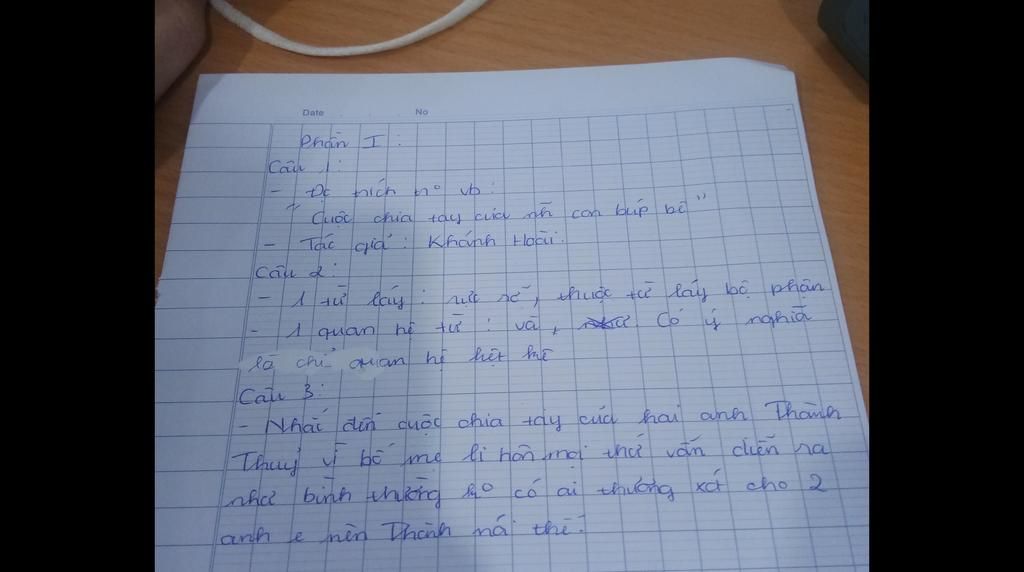 Date No
Phần I:
Câu 1:
- Đc trích từ vb:
"Cuộc chia tay của nh~ con búp bê"
- Tác giả: Khánh Hoài.
Câu 2:
- 1 từ láy: rực rỡ, thuộc từ láy bộ phận
- 1 quan hệ từ: và, có ý nghĩa
là chỉ quan hệ liệt kê
Câu 3:
- Nhắc đến cuộc chia tay của hai anh Thành
Thuỷ vì bố mẹ li hôn mọi thứ vẫn diễn ra
như bình thường ko có ai thương xót cho 2
anh e nên Thành nói thế.